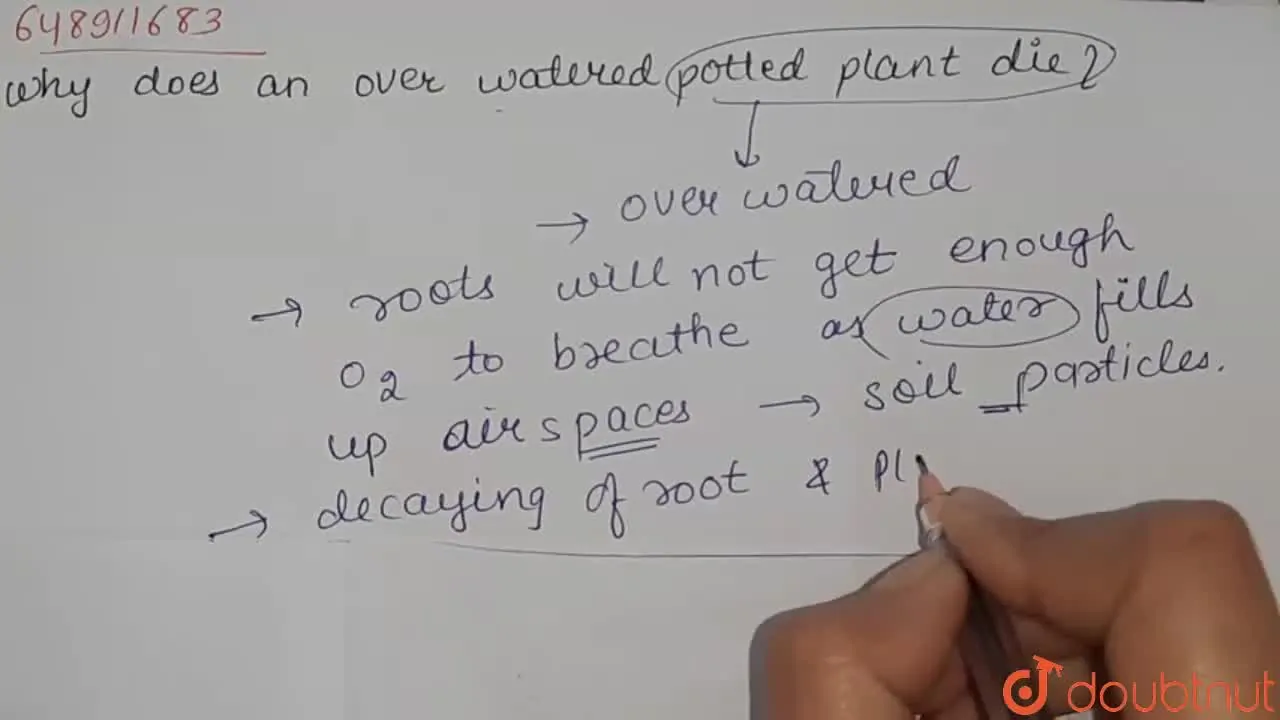 648911683
why does an over watered potted plant die?
→ over watered
→ roots will not get enough
O2 to breathe as water fills
up air spaces → soil particles.
→ decaying of root & pl
doubtnut